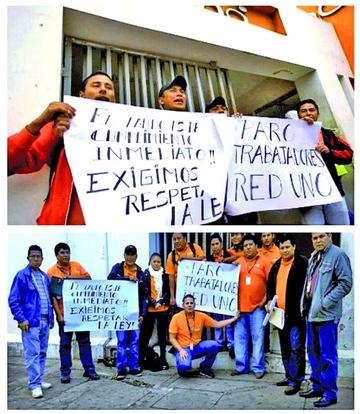 EL LAUDO ES DE
CUMPLIMIENTO
INMEDIATO!!
EXIGIMOS
RESPETA
LA LE
PARO
TRABAJADORES
RED UNO
CUMPLIMIENTO
INMEDIATO!!
EXIGIMOS
RESPETAR
LA LEY
PARO
TRABAJADORES
RED UNO